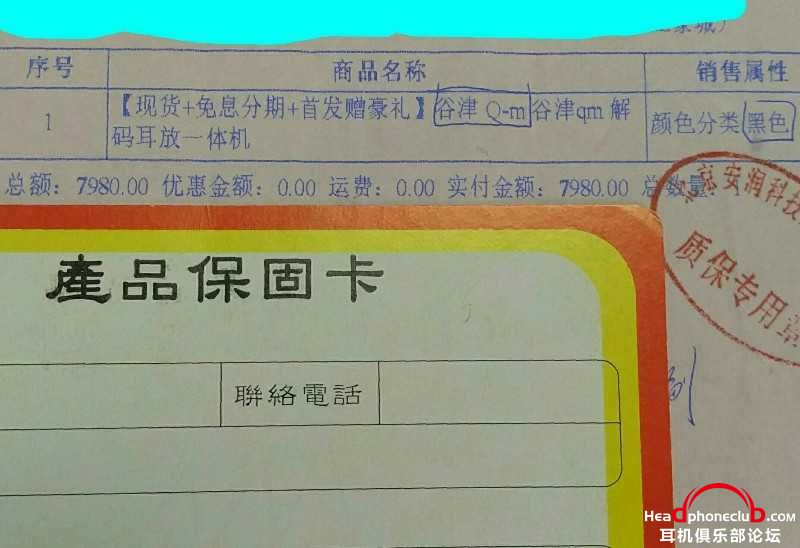 序号 商品名称 销售属性
1 【现货+免息分期+首发赠豪礼】谷津 Q-m 谷津qm 解 颜色分类 黑色
码耳放一体机
总额：7980.00 优惠金额：0.00 运费：0.00 实付金额：7980.00 总数量
京安润科技
质保专用章
產品保固卡
聯絡電話
HeadphoneclUb.com
耳机俱乐部论坛